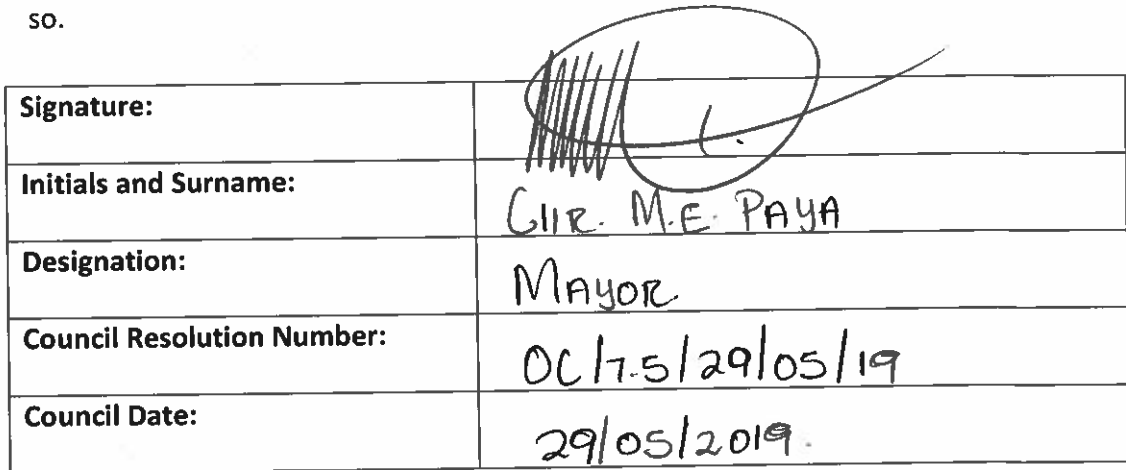 so.
Signature:
Initials and Surname: Cllr. M.E. PAYA
Designation: MAYOR
Council Resolution Number: OC/7.5/29/05/19
Council Date: 29/05/2019.